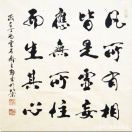 凡所有相
皆是虛妄
應無所住
而生其心